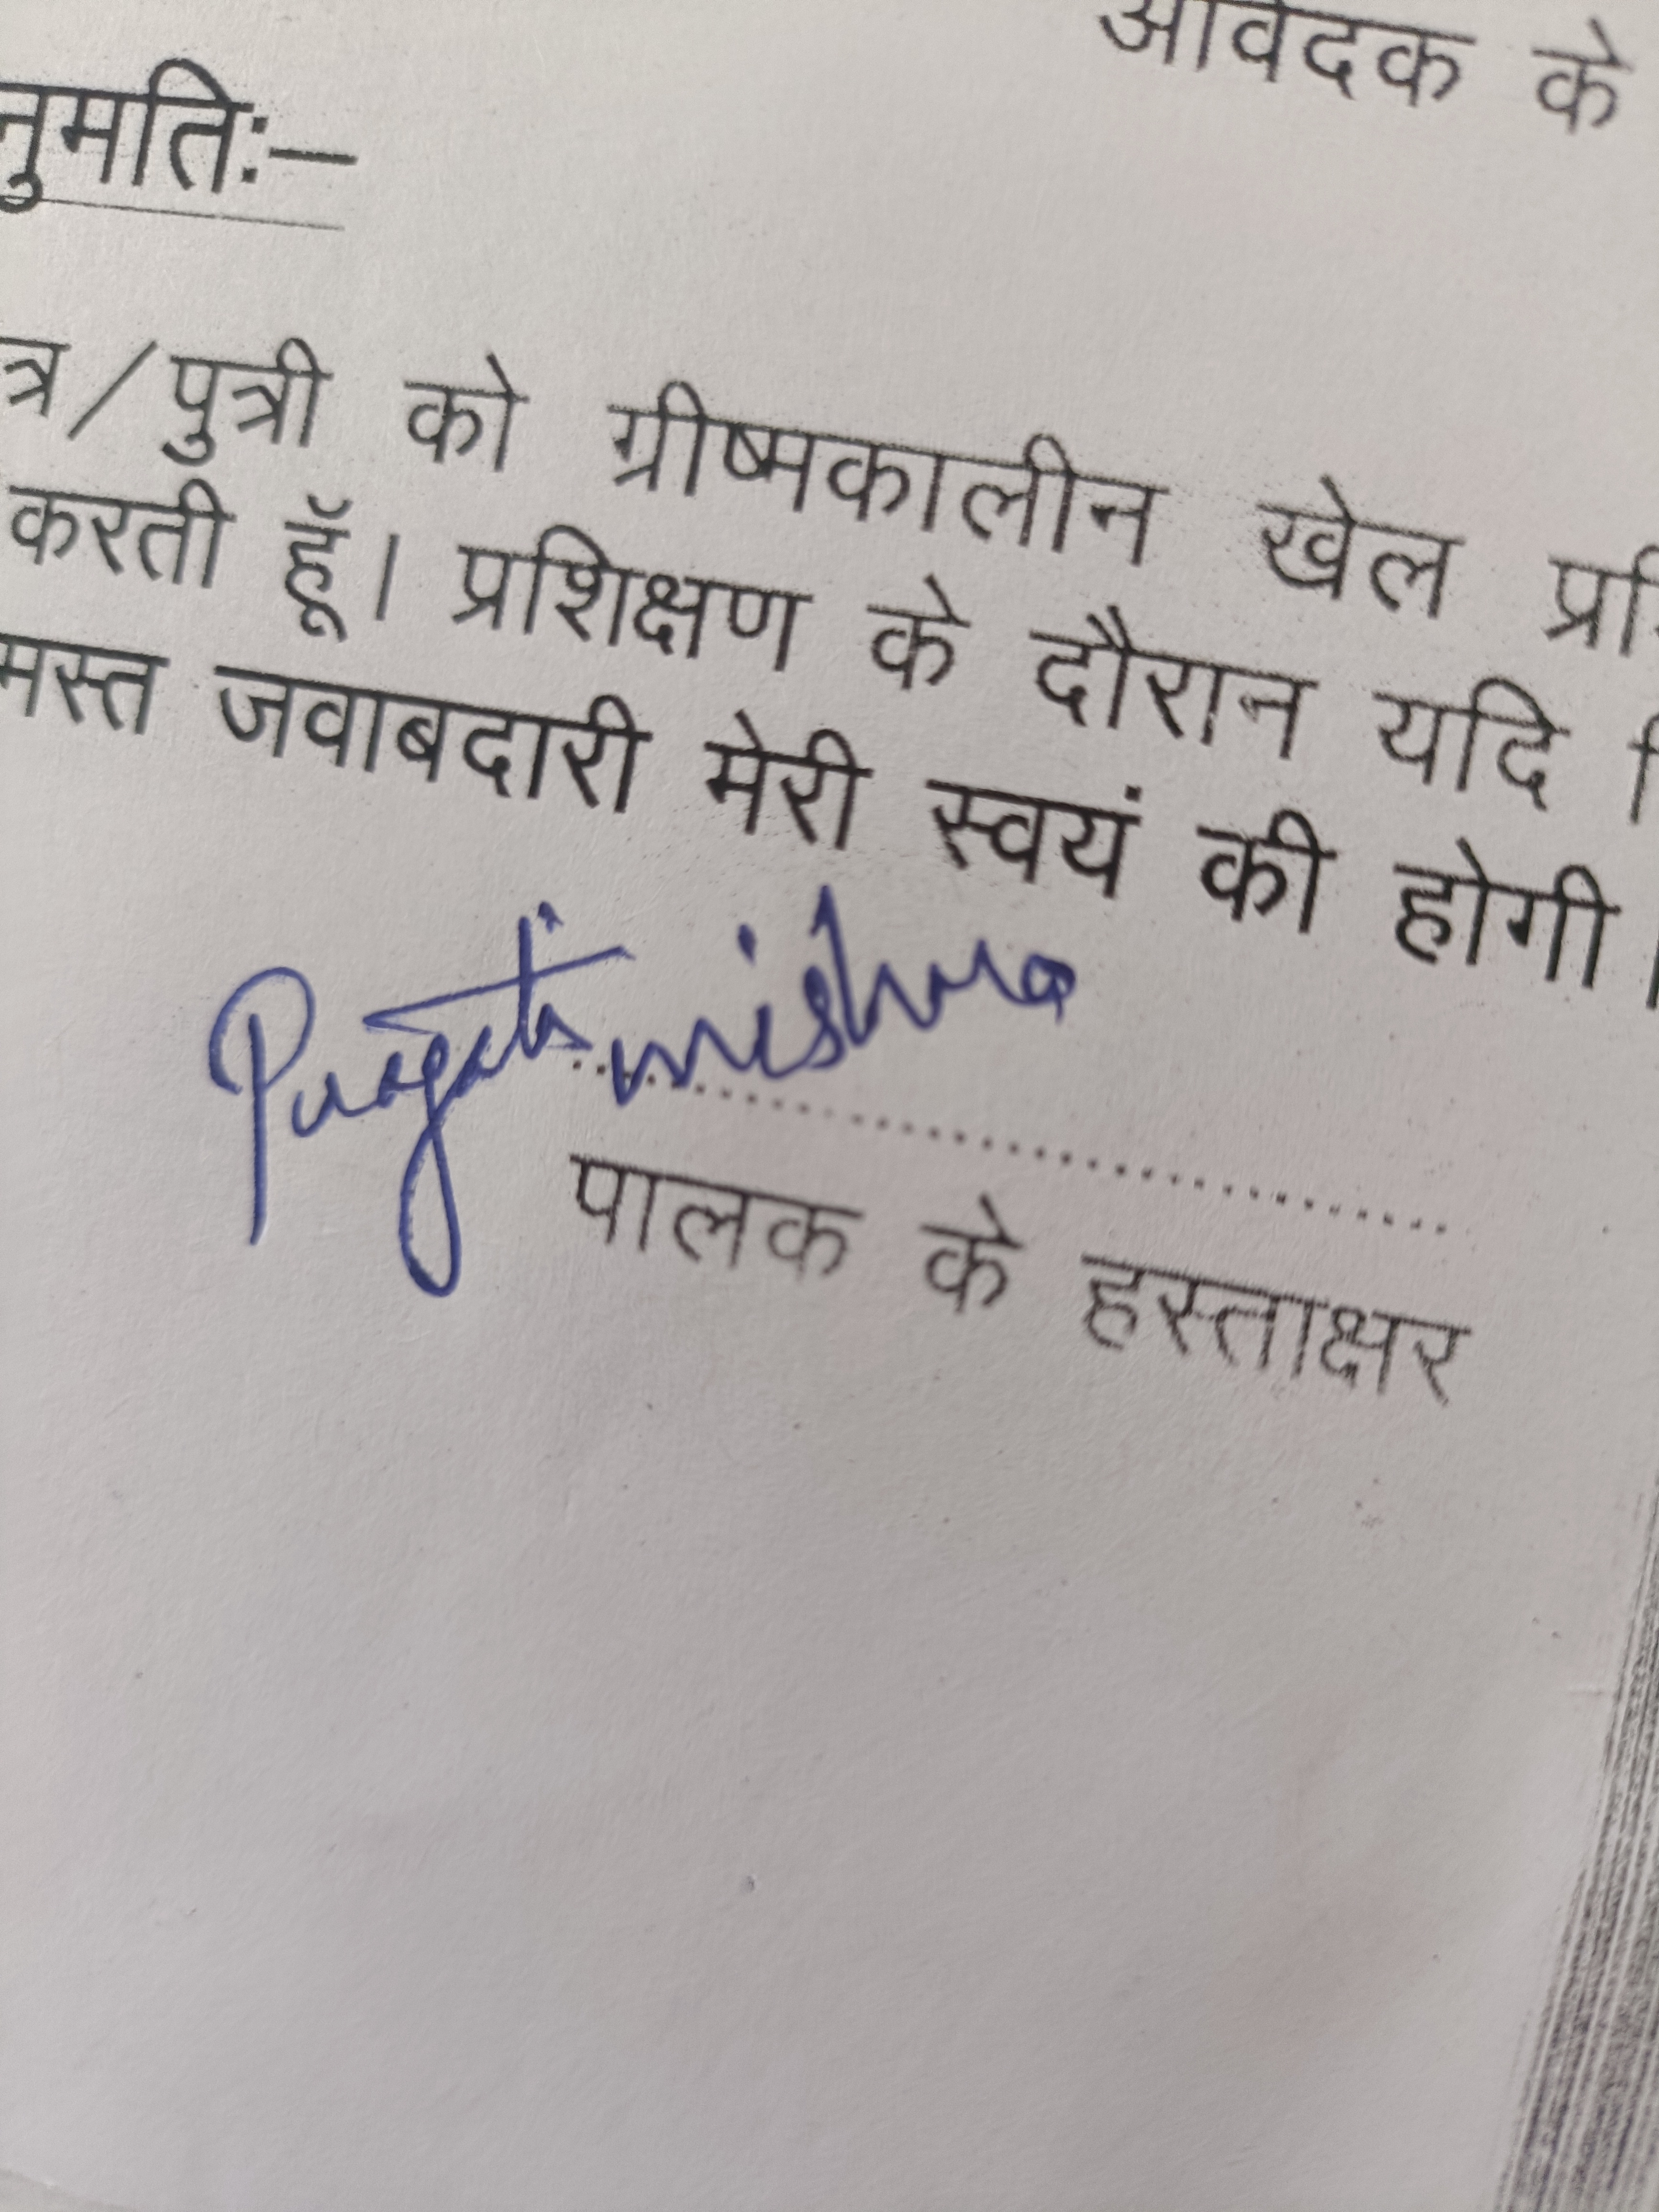 आवेदक के
नुमतिः–
त्र/पुत्री को ग्रीष्मकालीन खेल
करती हूॅ। प्रशिक्षण के दौरान यदि
मस्त जवाबदारी मेरी स्वयं की होगी।
Pragati mishra
पालक के हस्ताक्षर